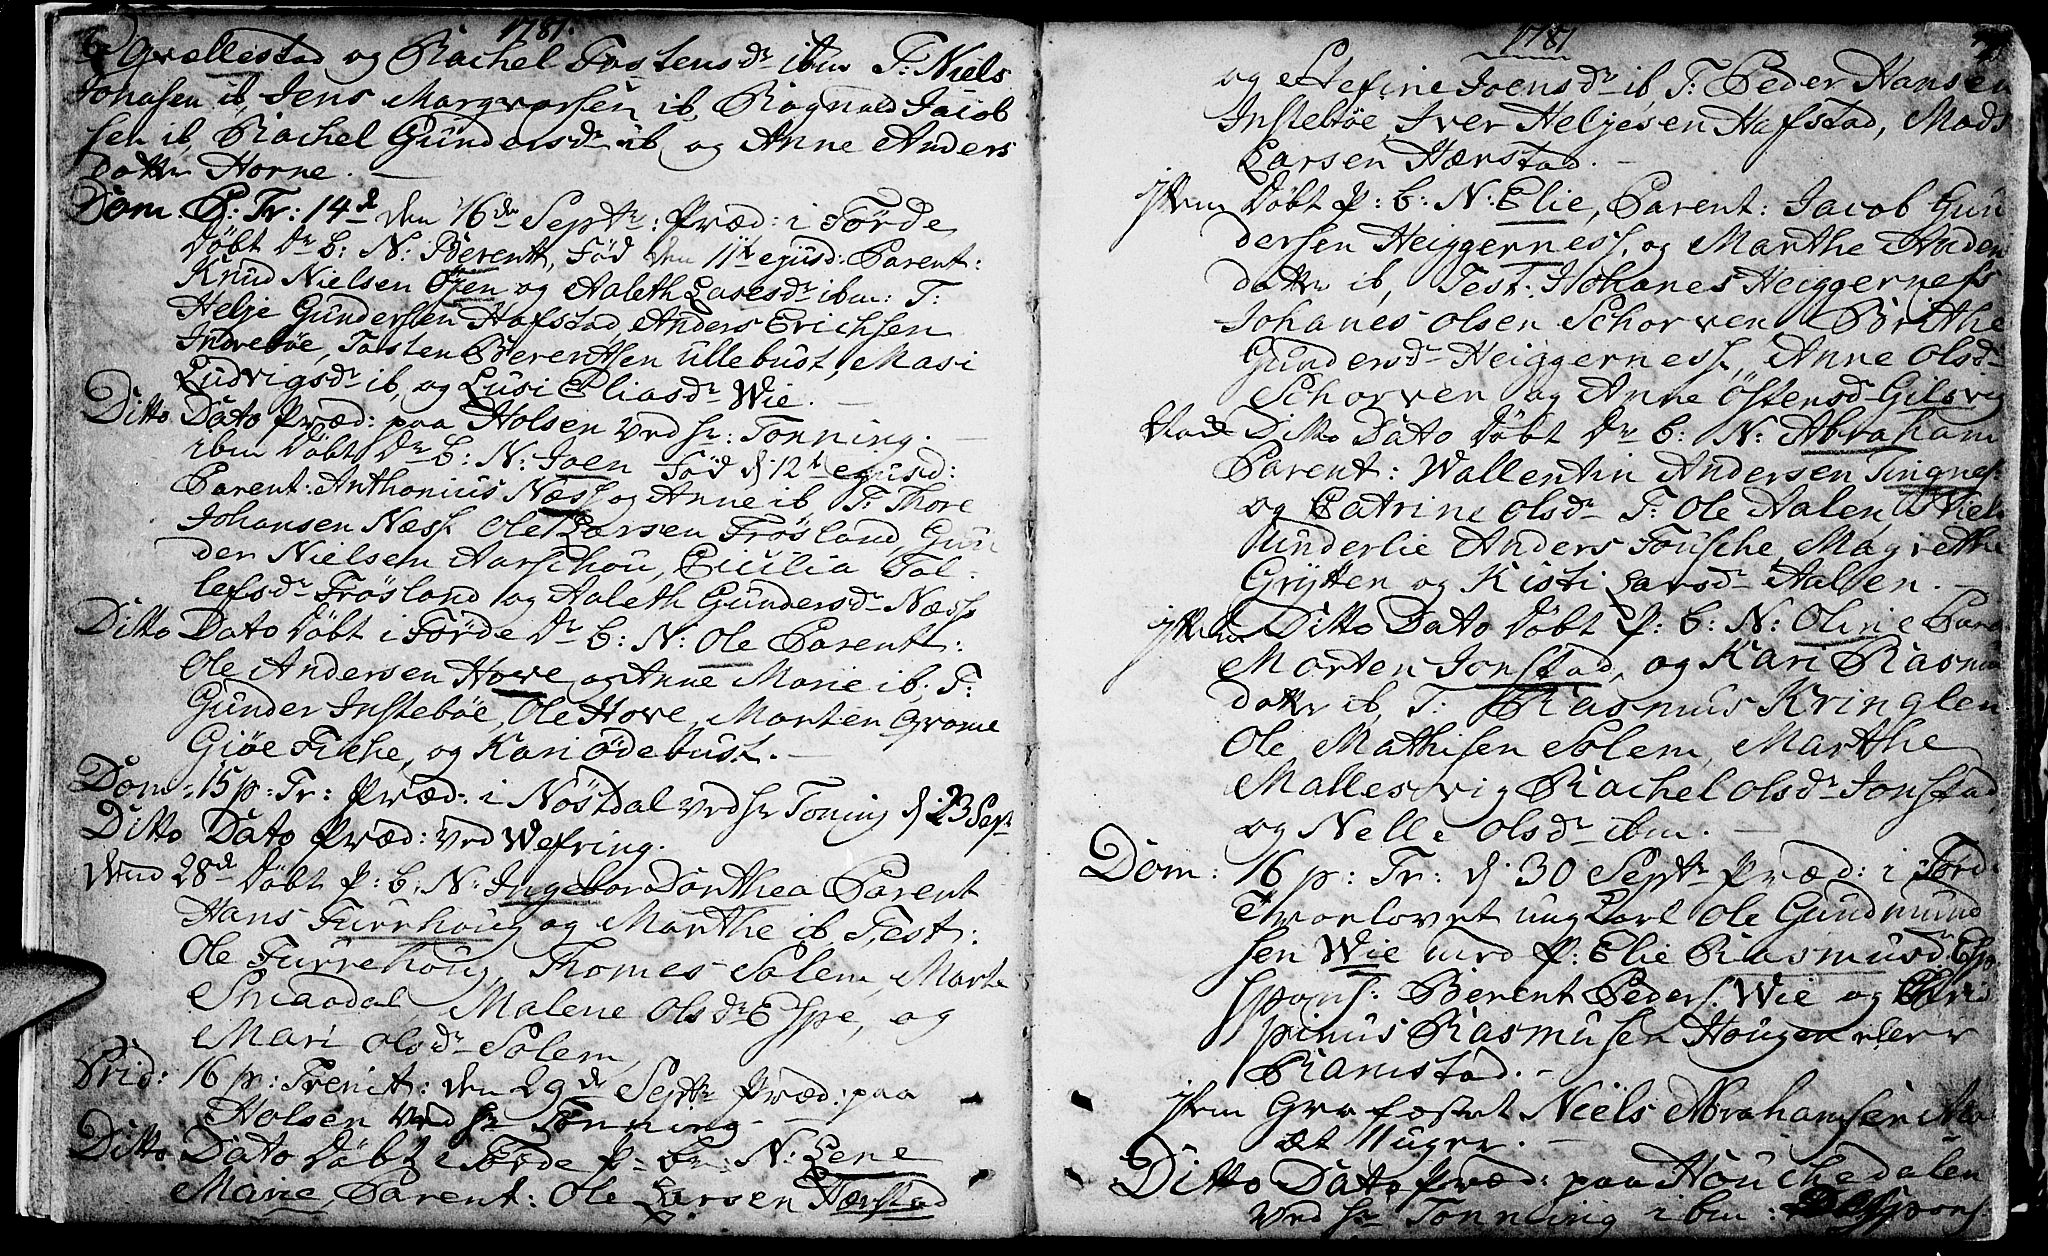 1781.
Gvællestad og Rachel Tostensdr ibm T: Niels
Johasen ib, Jens Margvorsen ib, Rognald Jacob
sen ib Rachel Gundersdr ib og Anne Anders
datter Horne.
Dom. P: Tr: 14d den 16de Septr: Præd: i Förde
Döbt Dr: b: N: Berent, Föd den 11te ejusd: Parent:
Knud Nielsen Öfen og Aaleth Lasesdr ibm: T:
Helje Gundersen Hafstad, Anders Erichsen
Indreböe, Tosten Berentsen Ullebust, Masi
Ludvigsdr ib, og Lusi Eliasdr Wie.
Ditto Dato Præd: paa Holsen ved Hr: Tonning.
ibm Döbt Dr: b: N: Joen Föd d: 12te ejusd:
Parent: Anthonius Næss og Anne ib, T: Thore
Johansen Næss Ole Larsen Frösland, Gun
der Nielsen Aarschou, Cicilia Tol-
lefsdr Frösland og Aaleth Gundersdr Næss
Ditto Dato Döbt i Förde Dr: b: N: Ole Parent:
Ole Andersen Hove og Anne Marie ib. T:
Gunder Insteböe, Ole Hove, Morten Grome
Giöe Fiche, og Kari Ödebust.
Dom: 15 p: Tr: Præd: i Nöstdal ved Hr Toning d: 23 Sept
Ditto Dato Præd: ved Wefring.
Dend 28de Döbt P: b: N: Ingebor Dorthea Parent
Hans Furrhoug og Marthe ib, Test:
Ole Furrehoug, Thomes Solem, Marte
Smaadal, Malene Olsdr Espe, og
Mari Olsdr Solem,
Prid: 16 p: Trenit: den 29de Septr Præd: paa
Holsen ved Hr Tonning
Ditto Dato Döbt i Förde P: b: N: Lene
Marie, Parent: Ole Larsen Hærstad
1781
og Stefine Joensdr ib, T: Peder Hansen
Insteböe, Iver Heljesen Hafstad, Mads
Larsen Hærstad.
Item Döbt P: b: N: Elie, Parent: Jacob Gun
dersen Heiggerness, og Marthe Anders
datter ib, Test: Johanes Heiggerness
Johanes Olsen Schorven Brithe
Gundersdr Heiggerness, Anne Olsdr
Schorven og Anne Östensdr Gilsvig
Ditto Dato Döbt Dr: b: N: Abraham
Parent: Wallentin Andersen Tingnes
og Catrine Olsdr T: Ole Aalen, Niels
Underlie Anders Fousche, Magrethe
Grytten og Kisti Larsdr Aalen.
Item Ditto Dato Döbt P: b: N: Oline Pare
Morten Jonstad, og Kari Rasmus
datter ib, T: Rasmus Kringlen
Ole Mathisen Solem, Marthe
Mallesvig Rachel Olsdr Jonstad
og Nelle Olsdr ibm.
Dom: 16 p: Tr: d: 30 Septr Præd: i Förd:
Trorlovet ung Carl Ole Gudmund
sen Wie med P: Elie Rasmusdr Espe
Spons: Berent Peders. Wie og Chris
pinus Rasmusen Hougen eller
Ramstad.
Item Gra festet Niels Abrahamsen
æt 11 uger.
Ditto Dato Præd: paa Houchedalen
ved Hr Tonning ibm: